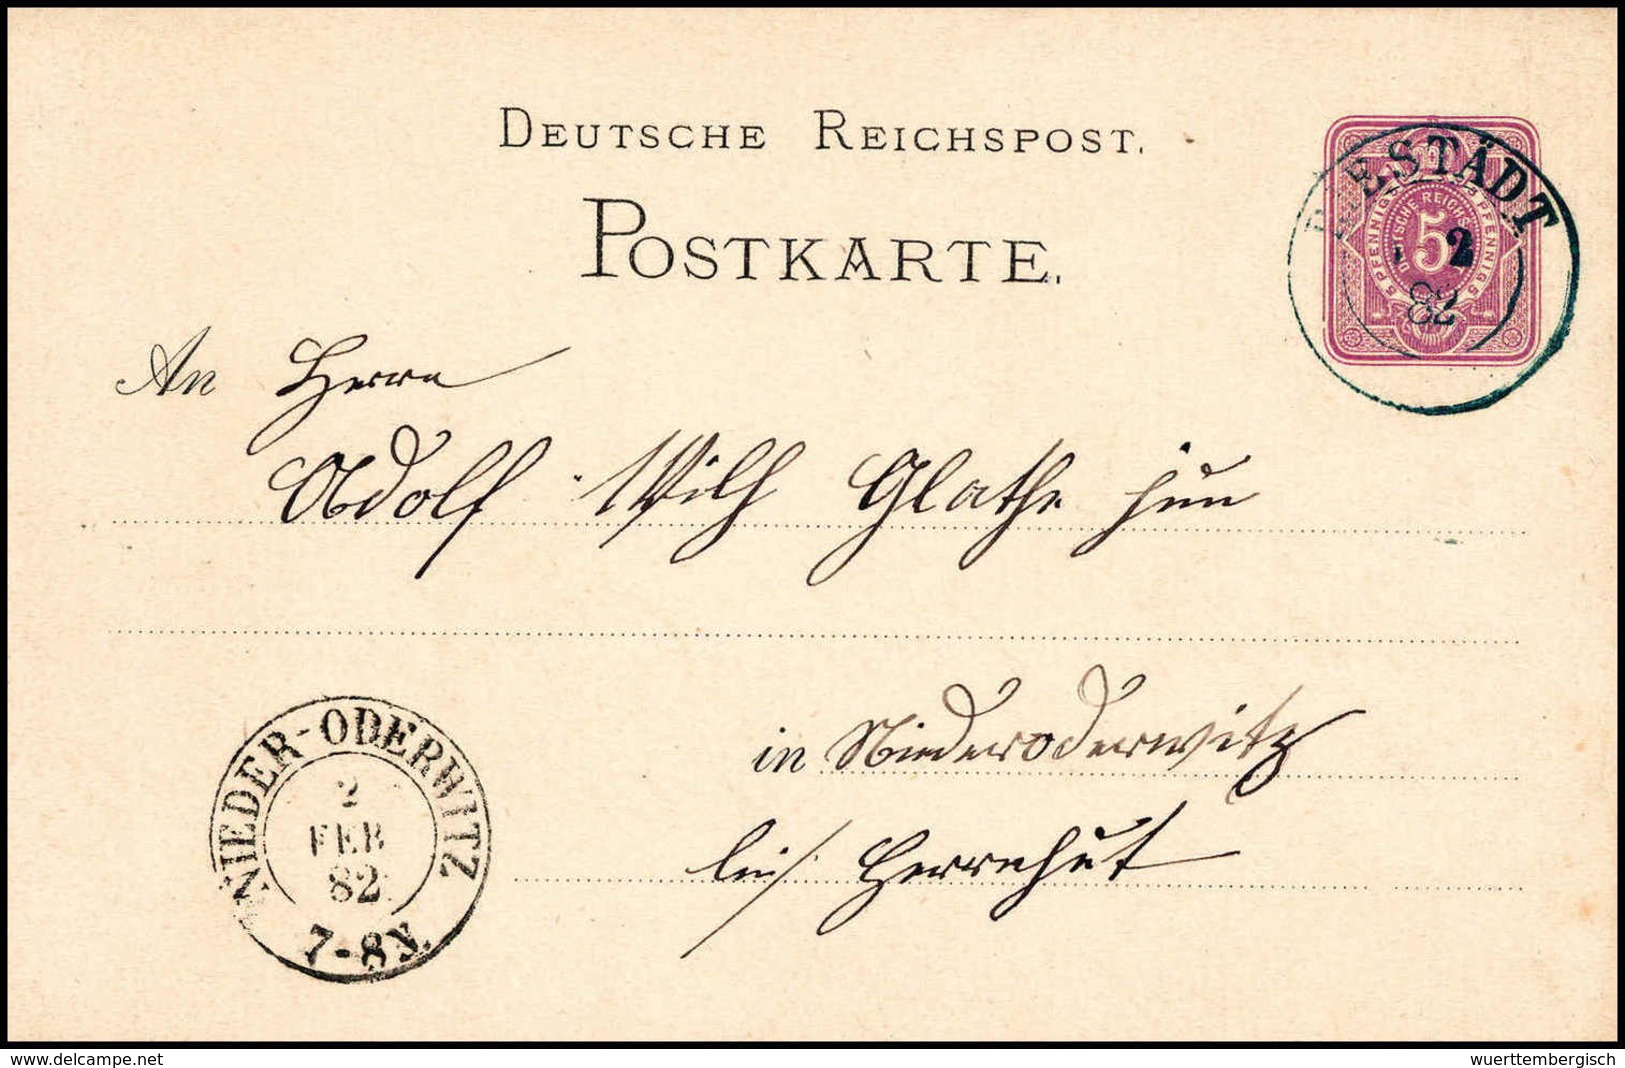 DEUTSCHE REICHSPOST.
POSTKARTE.
RIESTÄDT
2
82
5 PFENNIG 5 PFENNIG 5
DEUTSCHE REICHS
5
An Herrn
Adolf Wilh Glathe jun
in Niederoderwitz
bei Herrnhut
NIEDER-ODERWITZ
2
FEB
82
7-8 N.
www.delcampe.net
wuerttembergisch